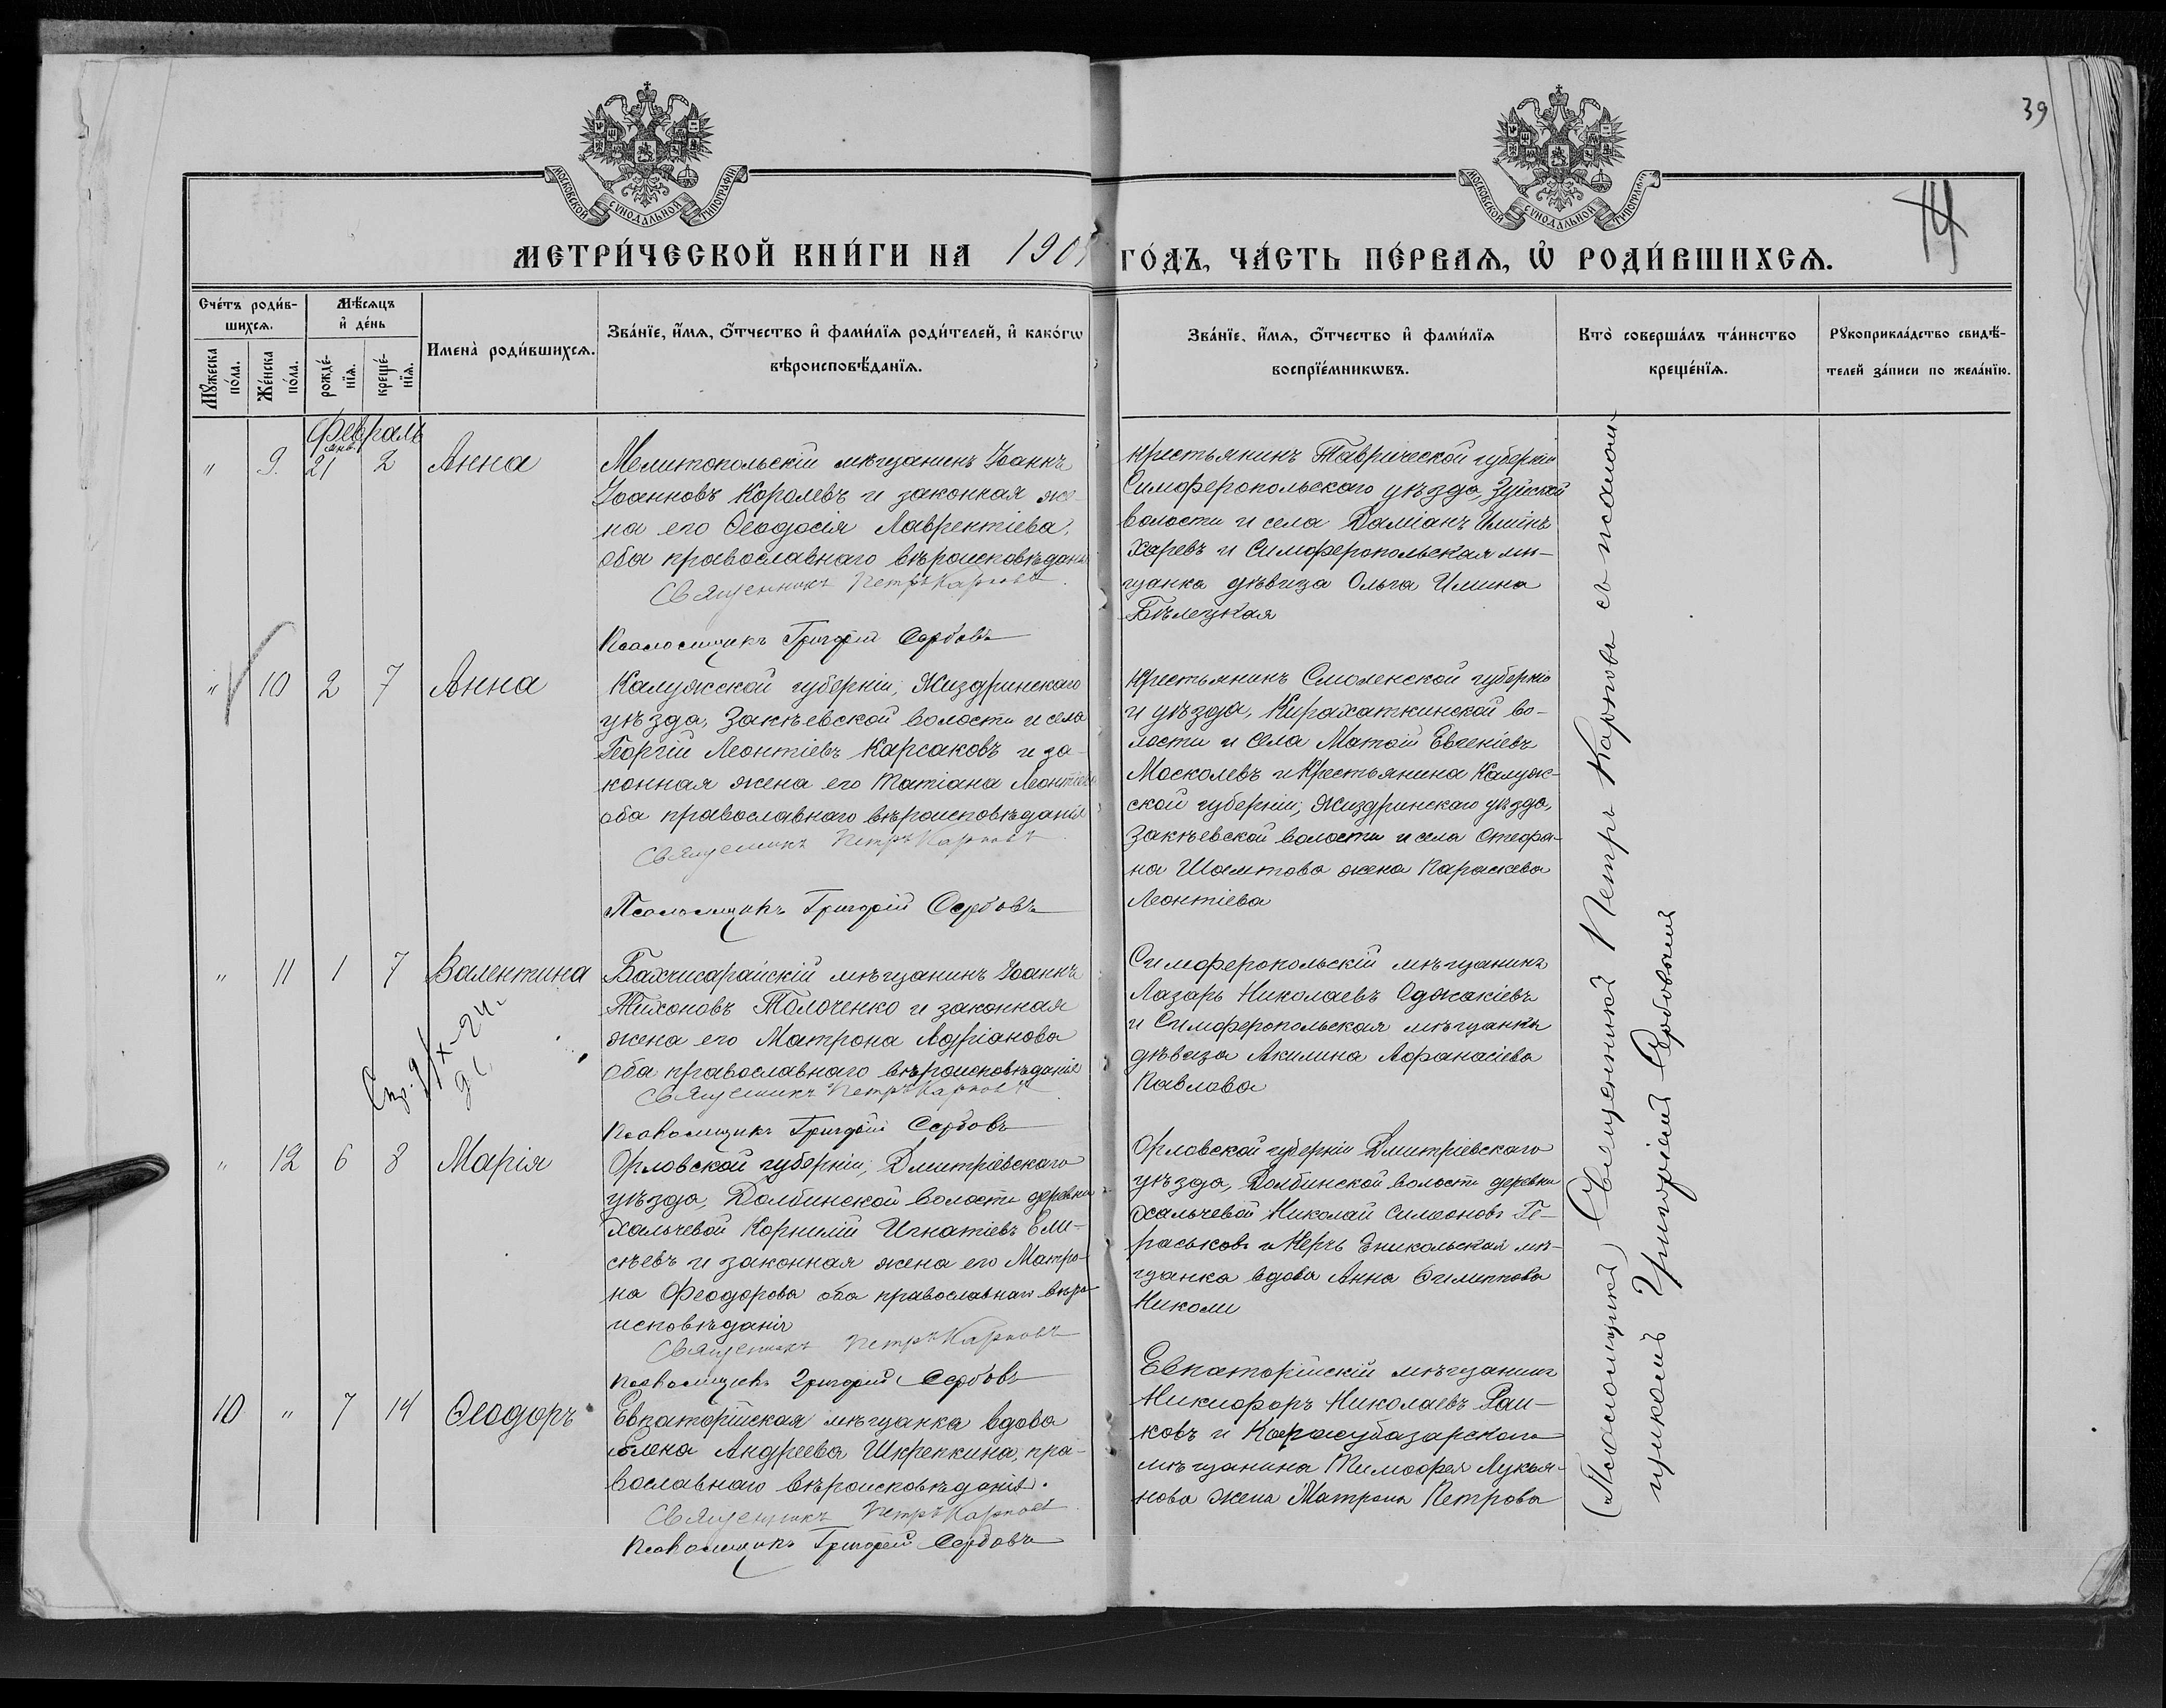 39
14
МОСКОВСКОЙ СѴНОДАЛЬНОЙ ТИПОГРАФІИ
МОСКОВСКОЙ СѴНОДАЛЬНОЙ ТИПОГРАФІИ
МЕТРИ́ЧЕСКОЙ КНИ́ГИ НА 190
ГО́ДЪ, ЧА́СТЬ ПЕ́РВАѦ, Ѡ҆ РОДИ́ВШИХСѦ.
Сче́тъ роди́в-
шихсѧ.
Мꙋ́жеска по́ла.
Же́нска по́ла.
Мѣ́сѧцъ
и҆ де́нь
рожде́-
нїѧ.
креще́-
нїѧ.
Имена̀ роди́вшихсѧ.
Зва́нїе, и҆́мѧ, ѻ҆́тчество и҆ фами́лїѧ роди́телей, и҆ како́гѡ
вѣроисповѣ́данїѧ.
Зва́нїе, и҆́мѧ, ѻ҆́тчество и҆ фами́лїѧ
воспрїе́мникѡвъ.
Кто̀ соверша́лъ та́инство
креще́нїѧ.
Рꙋкоприкла́дство свидѣ́-
телей за́писи по жела́нїю.
Февраль
янв.
" 9. 21 2 Анна
Мелитопольскій мѣщанинъ Іоаннъ
Іоанновъ Королевъ и законная же-
на его Ѳеодосія Лаврентіева,
оба православнаго вѣроисповѣданія
Священникъ Петръ Карповъ
Псаломщикъ Григорій Сербовъ
Крестьянинъ Таврической губерніи
Симферопольскаго уѣзда, Зуйской
волости и села Даміанъ
Харевъ и Симферопольская мѣ-
щанка дѣвица Ольга Илина
Бѣлецкая
" 10 2 7 Анна
Калужской губерніи, Жиздринскаго
уѣзда, Закѣевской волости и села
Георгій Леонтіевъ Карсаковъ и за-
конная жена его Татіана Леонтіева
оба православнаго вѣроисповѣданія
Священникъ Петръ Карповъ
Псаломщикъ Григорій Сербовъ
Крестьянинъ Смоленской губерніи
и уѣзда, во-
лости и села Матѳій Евгеніевъ
Москолевъ и Крестьянина Калуж-
ской губерніи, Жиздринскаго уѣзда,
Закѣевской волости и села Стефа-
на жена Параскева
Леонтіева
" 11 1 7 Валентина
Бахчисарайскій мѣщанинъ Іоаннъ
Тихоновъ Толоченко и законная
жена его Матрона Адріанова
оба православнаго вѣроисповѣданія
Священникъ Петръ Карповъ
Псаломщикъ Григорій Сербовъ
Симферопольскій мѣщанинъ
Лазарь Николаевъ Оджакіевъ
и Симферопольская мѣщанка
дѣвица Акилина Аѳанасіева
Павлова
" 12 6 8 Марія
Орловской губерніи, Дмитріевскаго
уѣзда, Долбинской волости деревни
Хальчевой Корнилій Игнатіевъ Ели-
сѣевъ и законная жена его Матро-
на Ѳеодорова оба православнаго вѣро-
исповѣданія
Священникъ Петръ Карповъ
Псаломщикъ Григорій Сербовъ
Орловской губерніи Дмитріевскаго
уѣзда, Долбинской волости деревни
Хальчевой Николай Симеоновъ Ге-
раськовъ и Керчь Еникольская мѣ-
щанка вдова Анна Филиппова
Николи
10 " 7 14 Ѳеодоръ
Евпаторійская мѣщанка вдова
Елена Андреева Шкрепкина, пра-
вославнаго вѣроисповѣданія.
Священникъ Петръ Карповъ
Псаломщикъ Григорій Сербовъ
Евпаторійскій мѣщанинъ
Никифоръ Николаевъ Раш-
ковъ и Карасубазарскаго
мѣщанина Тимоѳея Лукья-
нова жена Матрона Петрова
Священникъ Петръ Карповъ съ псалом-
щикомъ Григоріемъ Сербовымъ